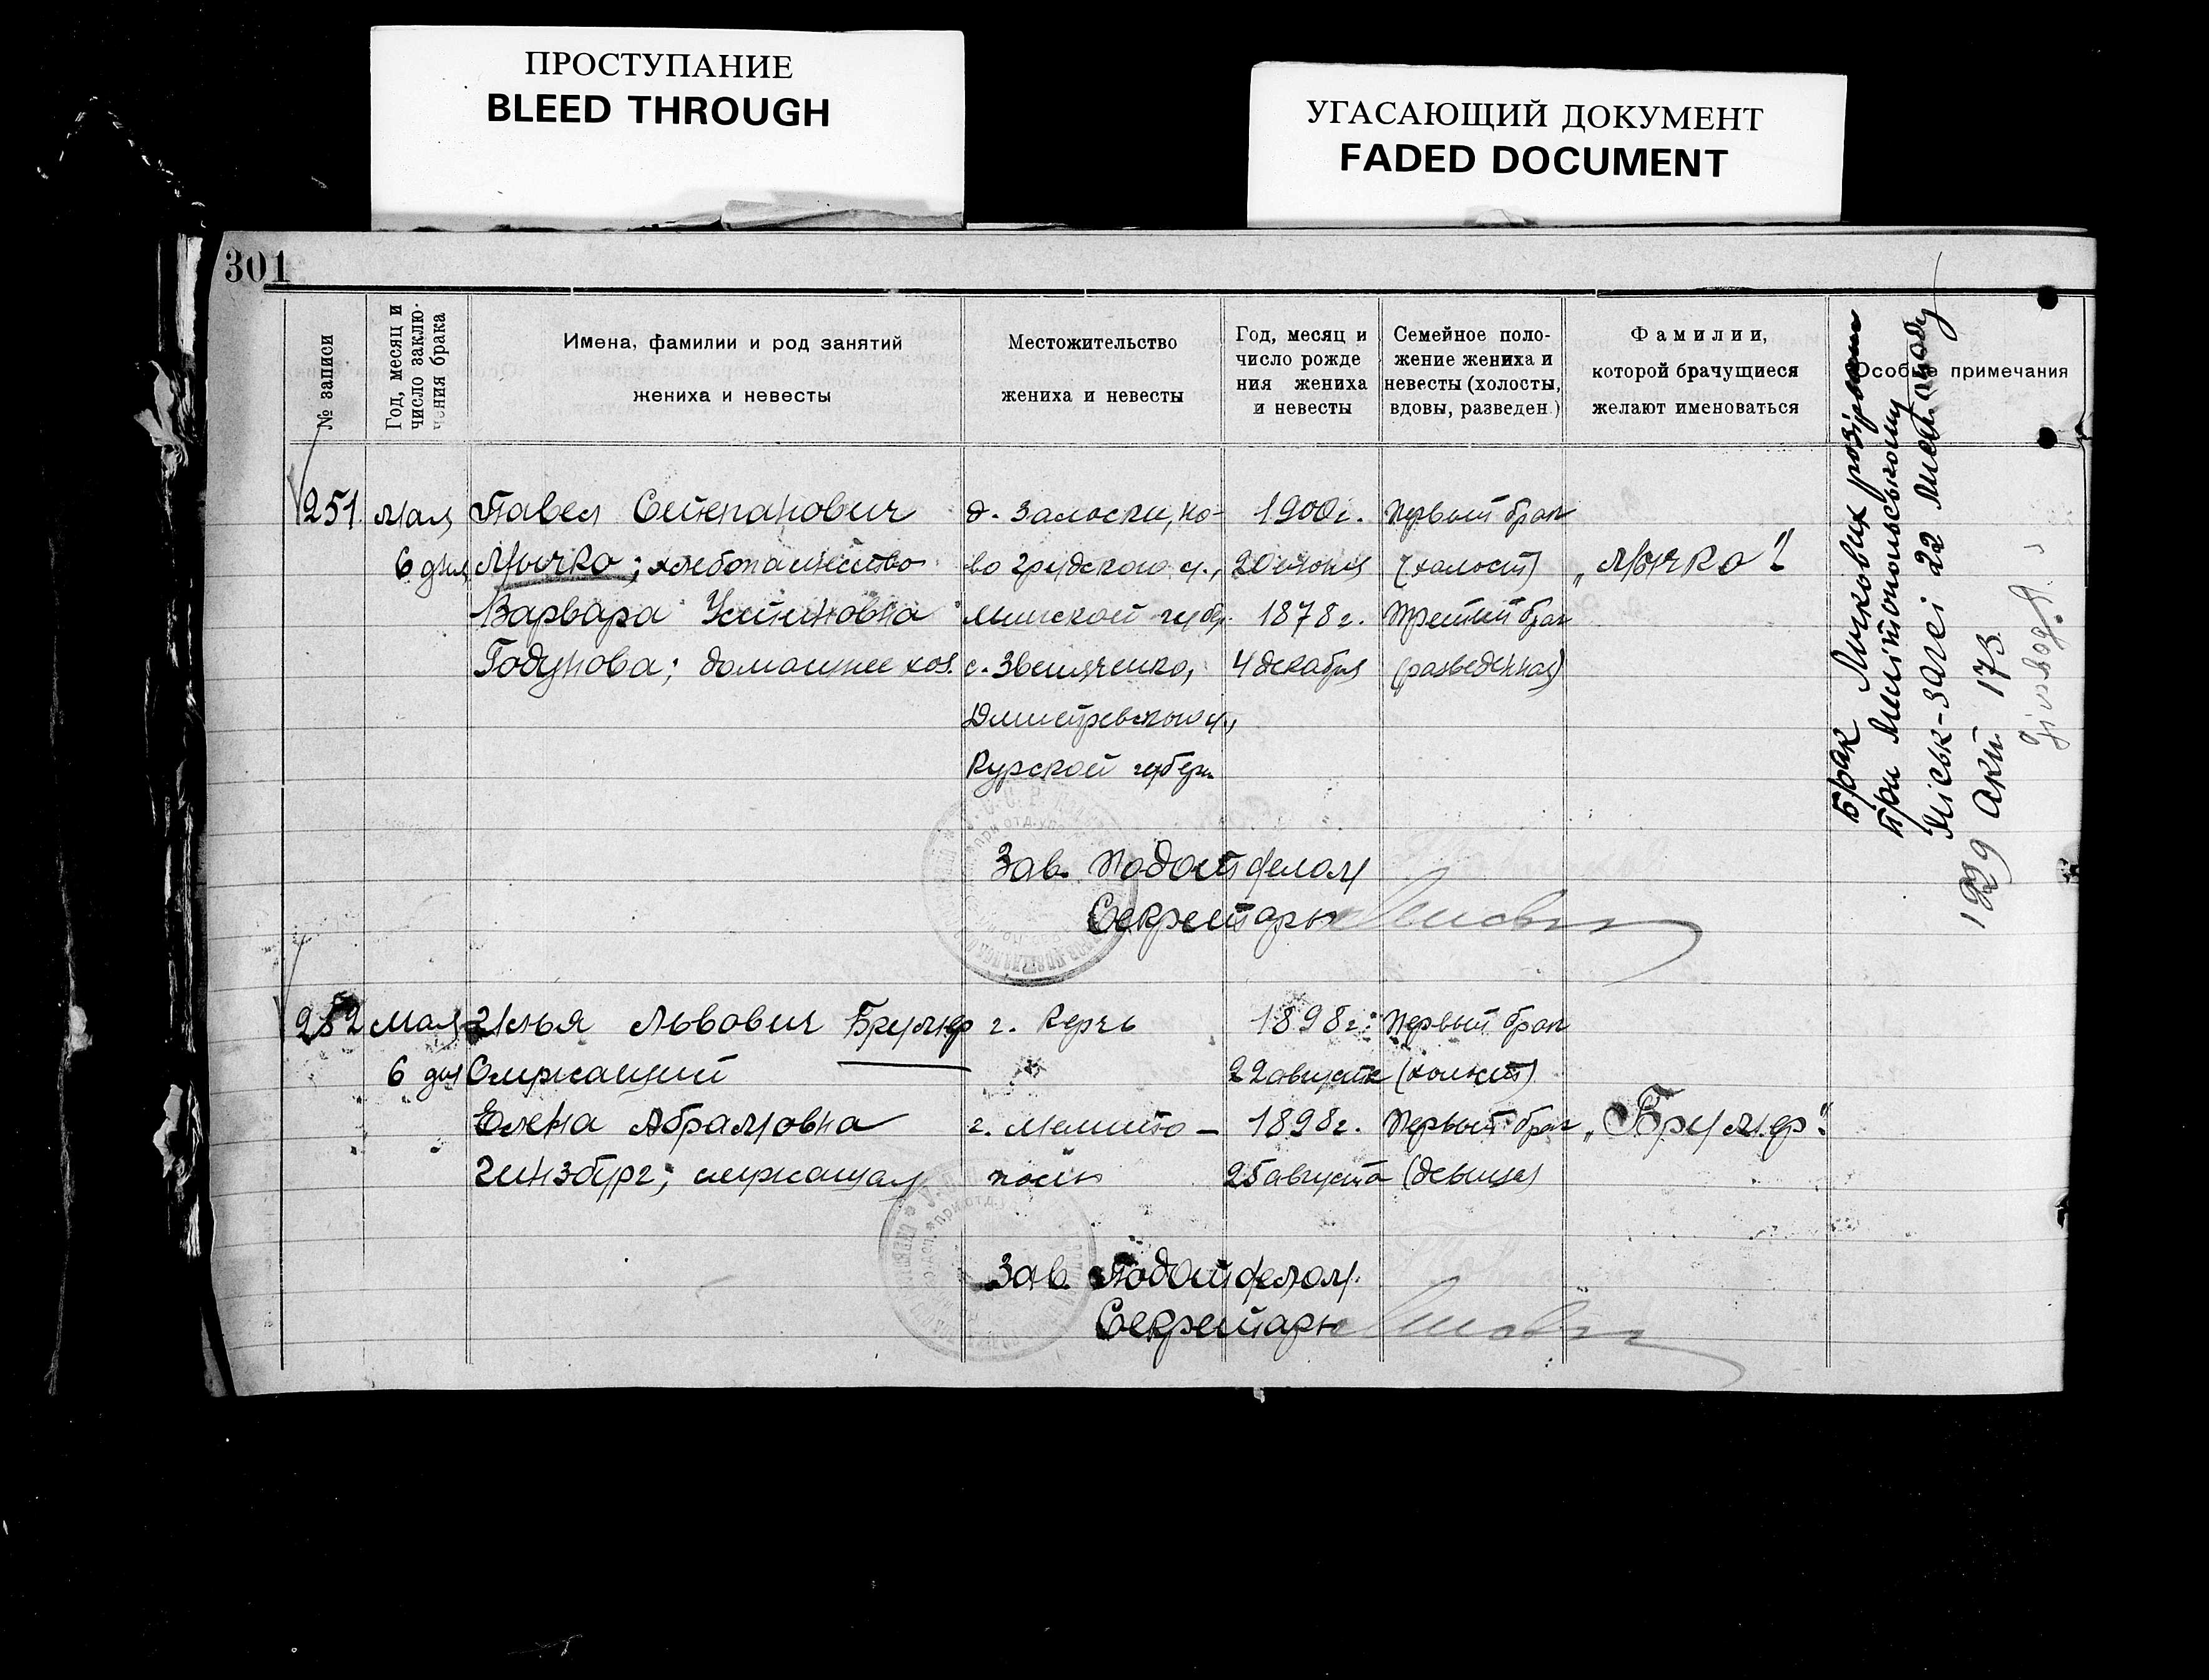 ПРОСТУПАНИЕ
BLEED THROUGH
УГАСАЮЩИЙ ДОКУМЕНТ
FADED DOCUMENT
301
№ записи
Год, месяц и
число заклю-
чения брака
Имена, фамилии и род занятий
жениха и невесты
Местожительство
жениха и невесты
Год, месяц и
число рожде
ния жениха
и невесты
Семейное поло-
жение жениха и
невесты (холосты,
вдовы, разведен.)
Фамилии,
которой брачущиеся
желают именоваться
Особые примечания
251. мая Павел Степанович д. Залоски, но- 1900 г. Первый брак
6 дня Мычко; хлебопашество во Грудского у., 20 июня (холост) „Мычко"
Варвара Устиновна Минской губ. 1878 г. Третий брак
Годунова; домашнее хоз. с. 4 декабря (разведенная)
Дмитревского у.,
Курской губерн
Зав. Подотделом
Секретарь
Брак розірван
При Мелітопольському
Міськ-ЗАГСі 22
1929 Акт 173
252 мая Илья Львович Брумер г. Керчь 1898 г. Первый брак
6 дня Служащий 22 августа (холост)
Елена Абрамовна г. Мелито- 1898 г. Первый брак „Брумер".
Гинзбург; служащая поль 25 августа (девица)
Зав. Подотделом
Секретарь